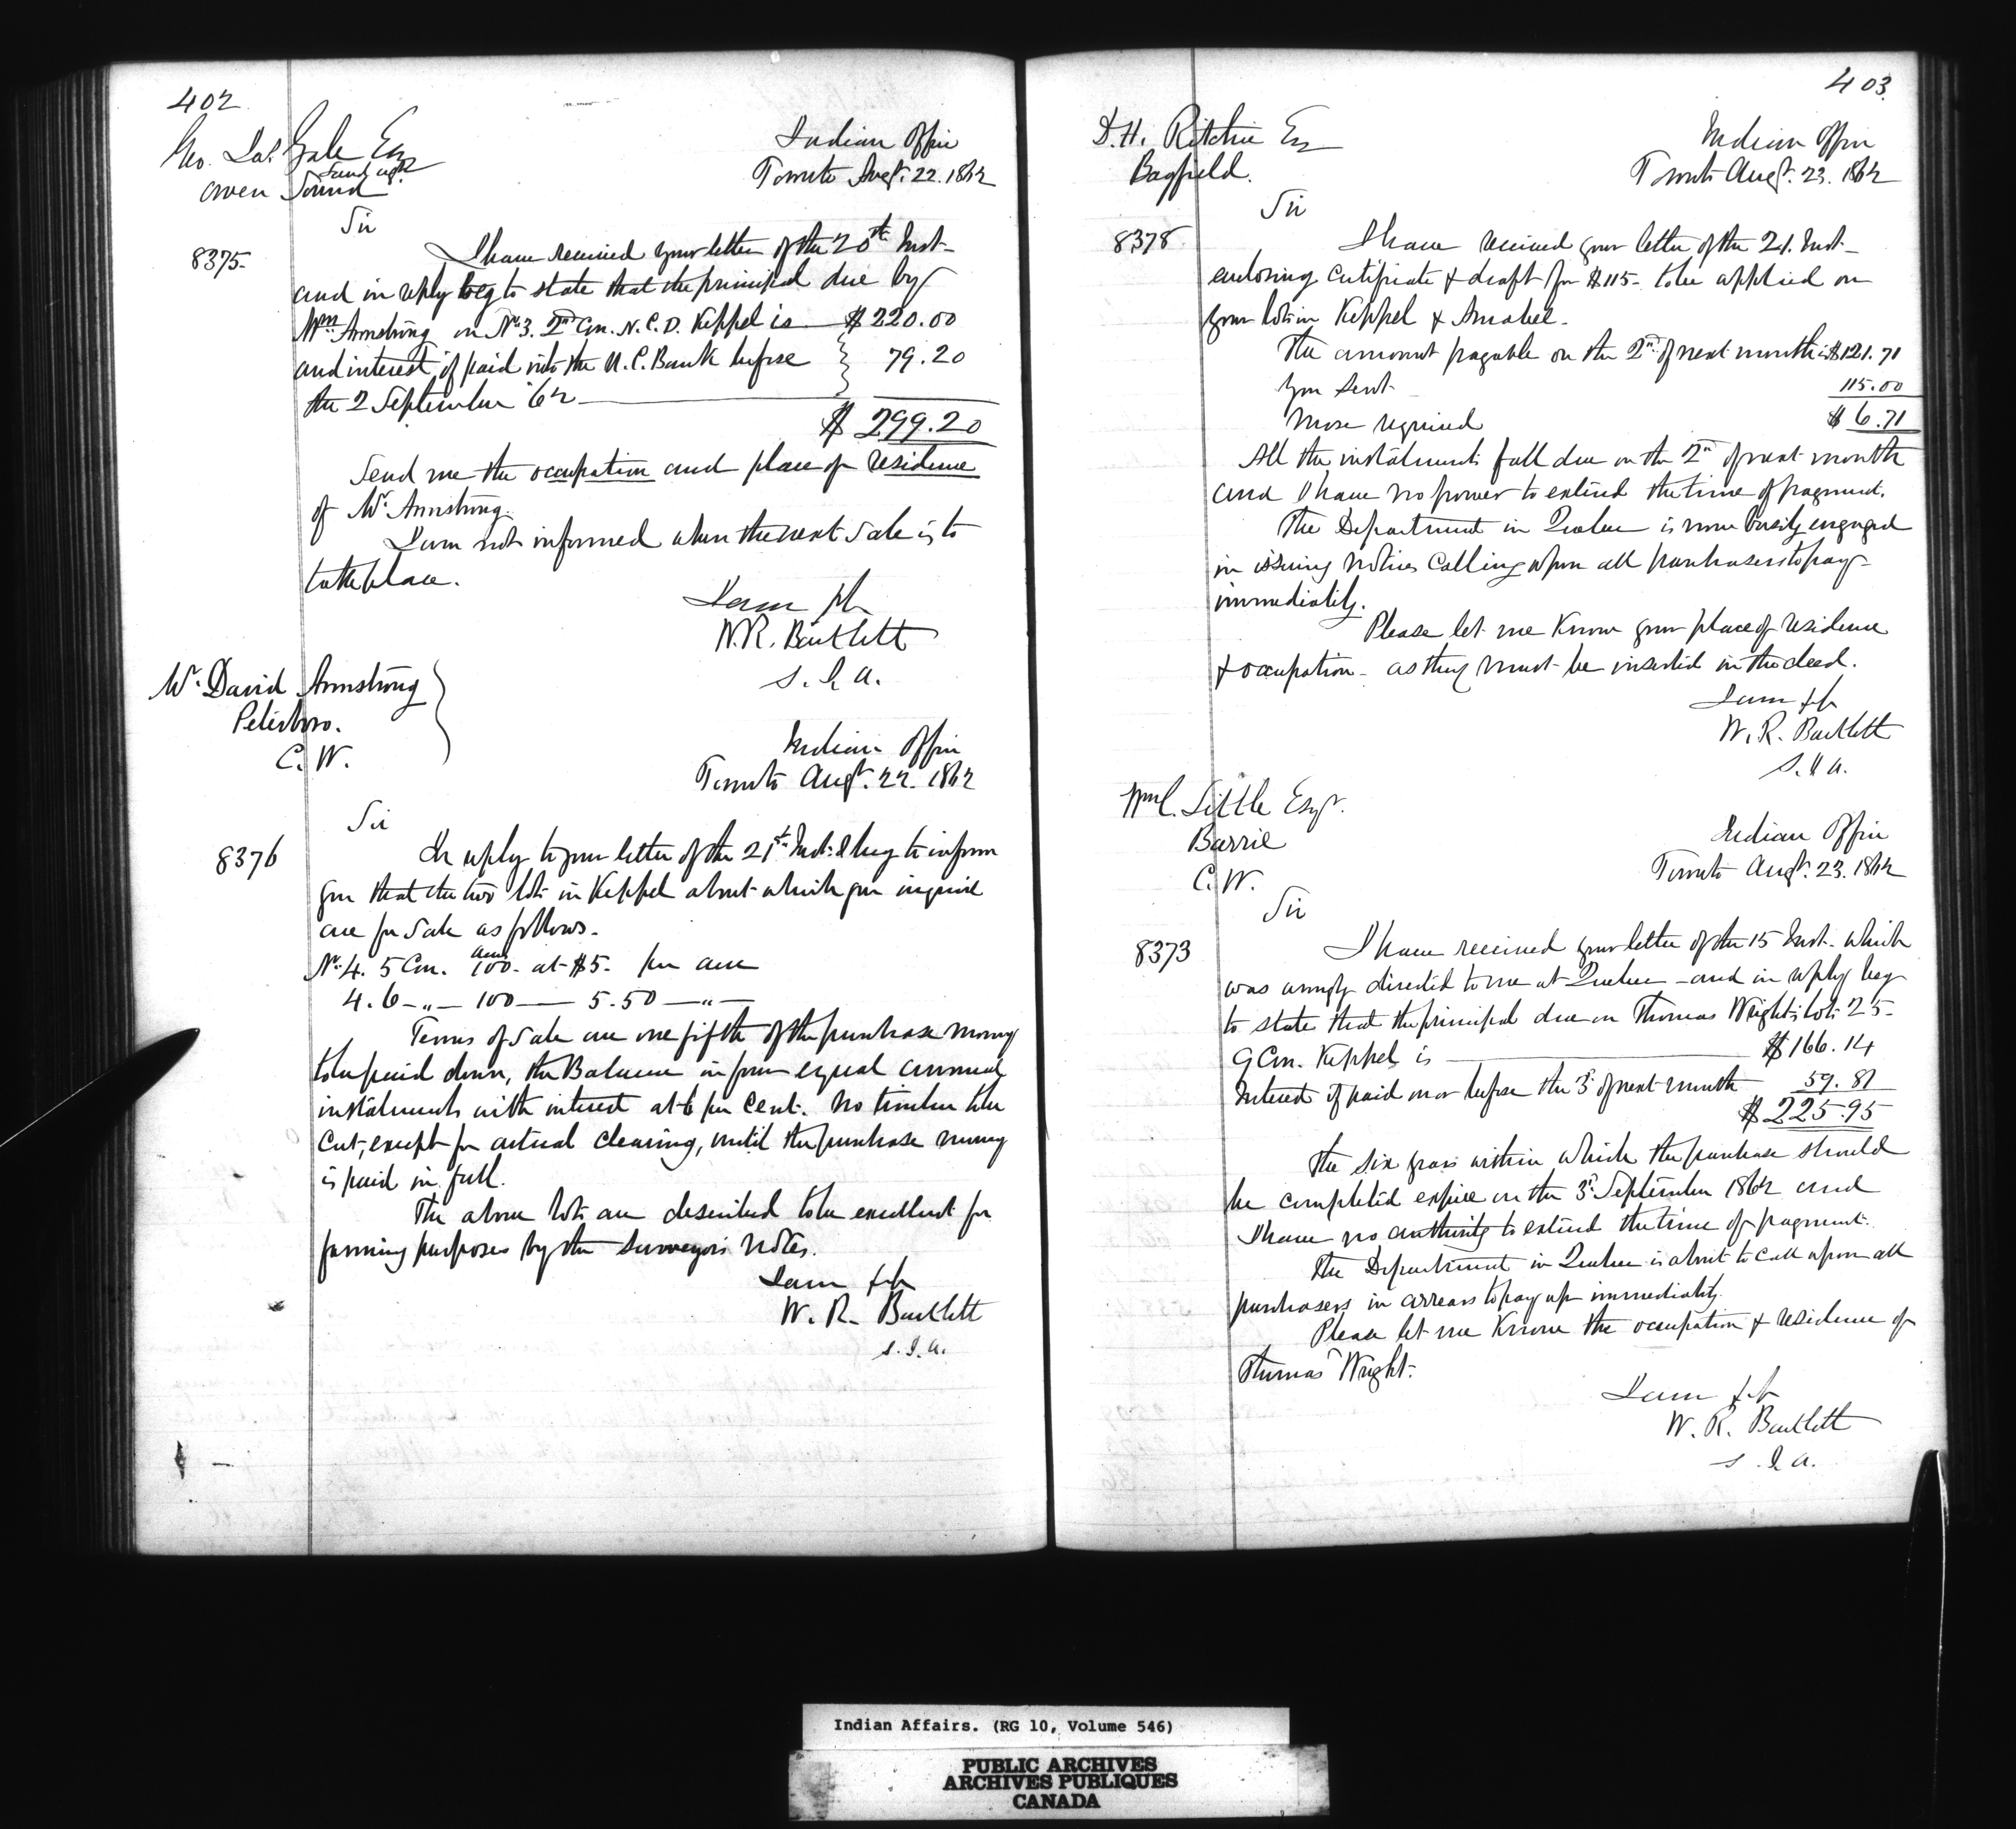 402
Geo. Jas. Gale Esq
Land agt.
Owen Sound
Indian Office
Toronto Augt. 22. 1862
Sir
8375
I have received your letter of the 20th Inst-
and in reply beg to state that the principal due by
Wm Armstrong on No 3. 2nd Con. N.C.D. Keppel is $220.00
and interest, if paid into the U.C. Bank before } 79.20
the 2 September '62
$ 299.20
Send me the occupation and place of residence
of Mr Armstrong.
I am not informed when the next Sale is to
take place.
I am &c
W.R. Bartlett
S. I. A.
Mr. David Armstrong
Peterboro.
C. W.
Indian Office
Toronto Augt. 22. 1862
Sir
8376
In reply to your letter of the 21st Inst: I beg to inform
you that the two lots in Keppel about which you inquire
are for Sale as follows.
No. 4. 5 Con. 100 acres - at $5. per acre
4. 6 - „ - 100 — 5.50 — „ —
Terms of Sale are one fifth of the purchase money
to be paid down, the Balance in four equal annual
instalments with interest at 6 per Cent. No timber to be
Cut, except for actual Clearing, until the purchase money
is paid in full.
The above lots are described to be excellent for
farming purposes by the Surveyor's Notes.
I am &c
W. R. Bartlett
S. I. A.
403
D. H. Ritchie Esq
Bayfield.
Indian Office
Toronto Augt. 23. 1862
Sir
8378
I have received your letter of the 21. Inst-
enclosing Certificate & draft for $115- to be applied on
your lots in Keppel & Amabel.
The amount payable on the 2nd of next month is $121.71
You sent 115.00
More required $ 6.71
All the instalments fall due on the 2nd of next month
and I have no power to extend the time of payment.
The Department in Quebec is now busily engaged
in issuing Notices Calling upon all purchasers to pay
immediately.
Please let me Know your place of residence
& occupation - as they must be inserted in the deed.
I am &c
W. R. Bartlett
S. I. A.
Wm C. Little Esqr.
Barrie
C. W.
Indian Office
Toronto Augt. 23. 1862
Sir
8373
I have received your letter of the 15 Inst. which
was wrongly directed to me at Quebec - and in reply beg
to state that the principal due on Thomas Wright's lot 25-
9 Con. Keppel is $166.14
Interest if paid on or before the 3d of next month 59.81
$ 225.95
The six years within which the purchase should
be completed expire on the 3d September 1862 and
I have no authority to extend the time of payment.
The Department in Quebec is about to call upon all
purchasers in arrears to pay up immediately.
Please let me Know the occupation & residence of
Thomas Wright.
I am &c
W. R. Bartlett
S. I. A.
Indian Affairs. (RG 10, Volume 546)
PUBLIC ARCHIVES
ARCHIVES PUBLIQUES
CANADA